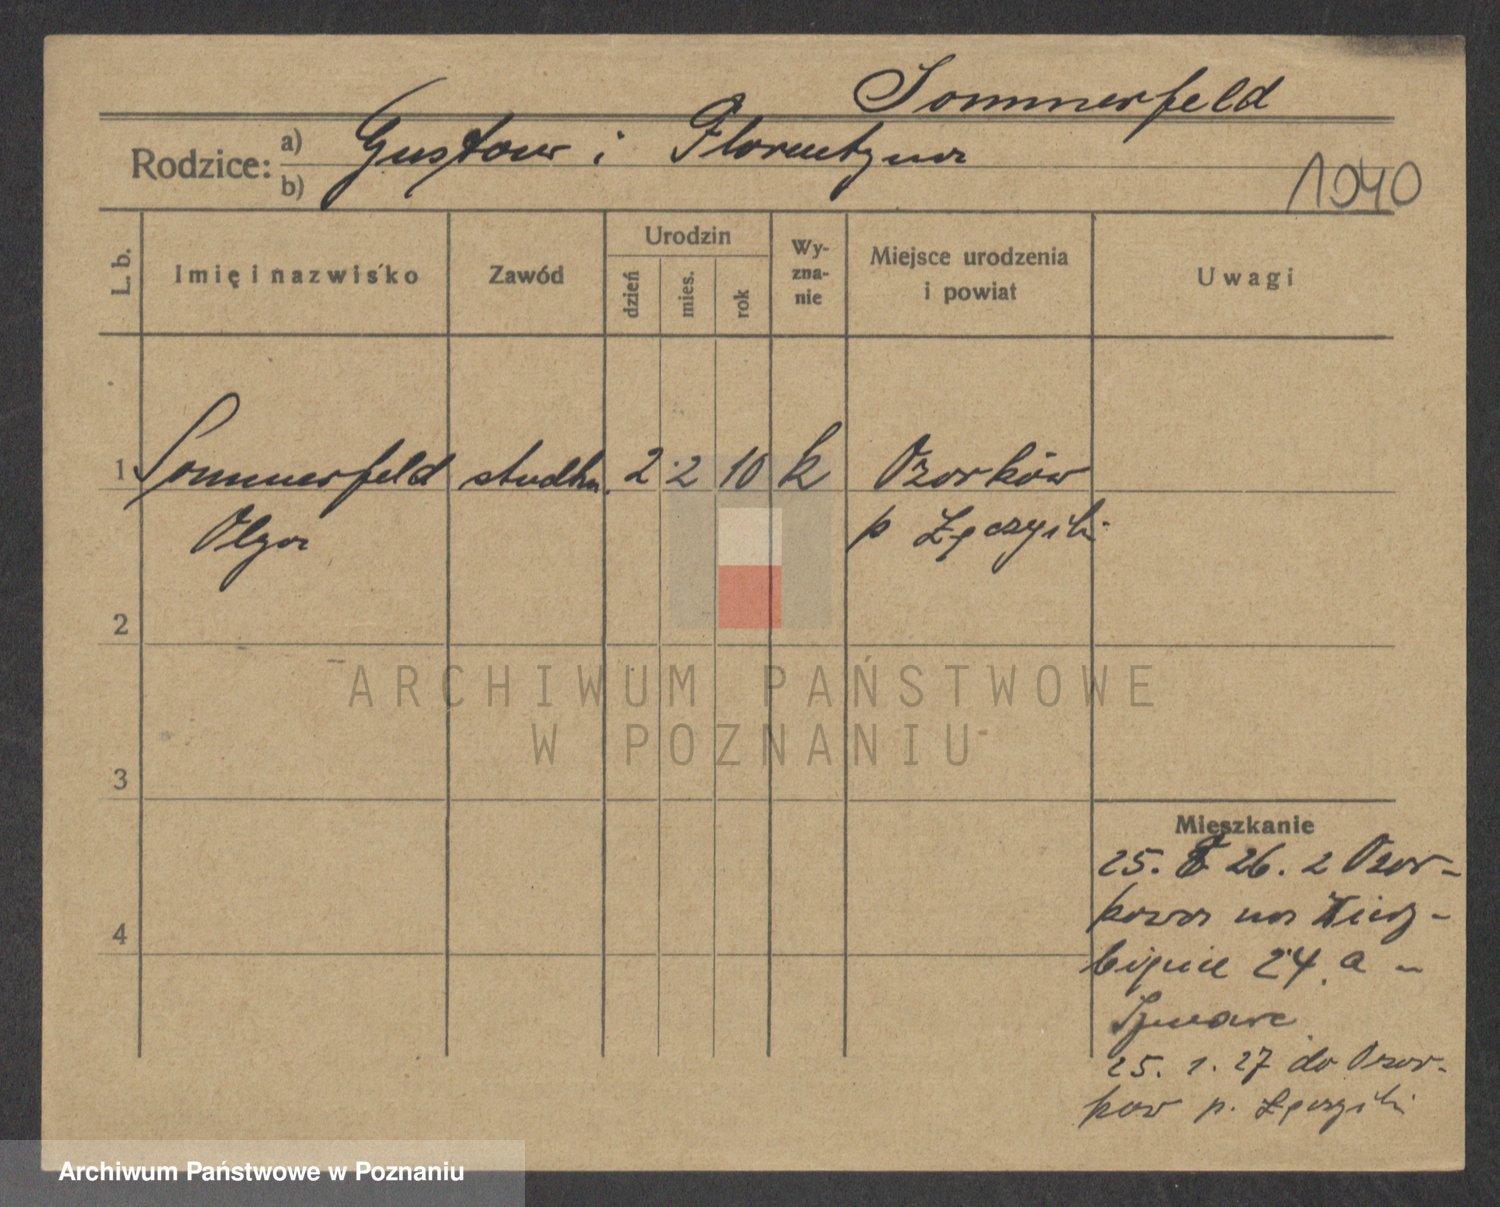 Sommerfeld
Rodzice: a) Gustaw i Florentyna
b)
1040
L. b.
Imię i nazwisko
Zawód
Urodzin
dzień
mies.
rok
Wy-
zna-
nie
Miejsce urodzenia
i powiat
Uwagi
1 Sommerfeld 2 2 10 k Ozorków
Olga p Łęczycki
2
3
4
ARCHIWUM PAŃSTWOWE
W POZNANIU
Mieszkanie
25. 8 26. z Ozor-
kowa na
24 a -
25. 1. 27 do Ozor-
kow p. Łęczycki
Archiwum Państwowe w Poznaniu